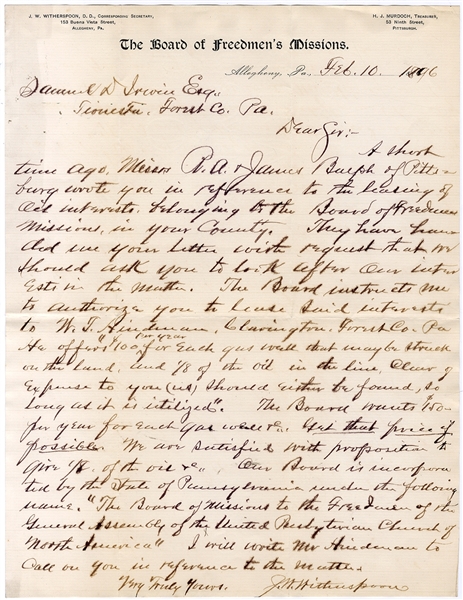 J. W. WITHERSPOON, D. D., CORRESPONDING SECRETARY,
153 BUENA VISTA STREET,
ALLEGHENY, PA.
H. J. MURDOCH, TREASURER,
53 NINTH STREET,
PITTSBURGH.
The Board of Freedmen's Missions.
Allegheny, Pa. Feb. 10. 1896
Samuel D Irwin Esq.,
Tionesta, Forest Co. Pa.
Dear Sir:-
A short
time ago, Messrs R. A. & James Balph of Pitts-
burg wrote you in reference to the leasing of
Oil interests, belonging to the Board of Freedmens
Missions, in your County. They have han
ded me your letter with request that we
should ask you to look after our inter
ests in the matter. The Board instructs me
to authorize you to lease said interests
to W. T. Hindman, Clarington, Forest Co. Pa
He offers "$100 per year for each gas well that may be struck
on the land, and 1/8 of the oil in the line, clear of
expense to you (us) should either be found, so
long as it is utilized". The Board wants
per year for each gas well &c. Get that price if
possible. We are satisfied with proposition to
give 1/8. of the oil &c., Our Board is incorpora
ted by the State of Pennsylvania under the following
name. "The Board of Missions to the Freedmen of the
General Assembly of the United Presbyterian Church of
North America" I will write Mr Hindman to
call on you in reference to the matter.
Very Truly Yours.
J. W. Witherspoon